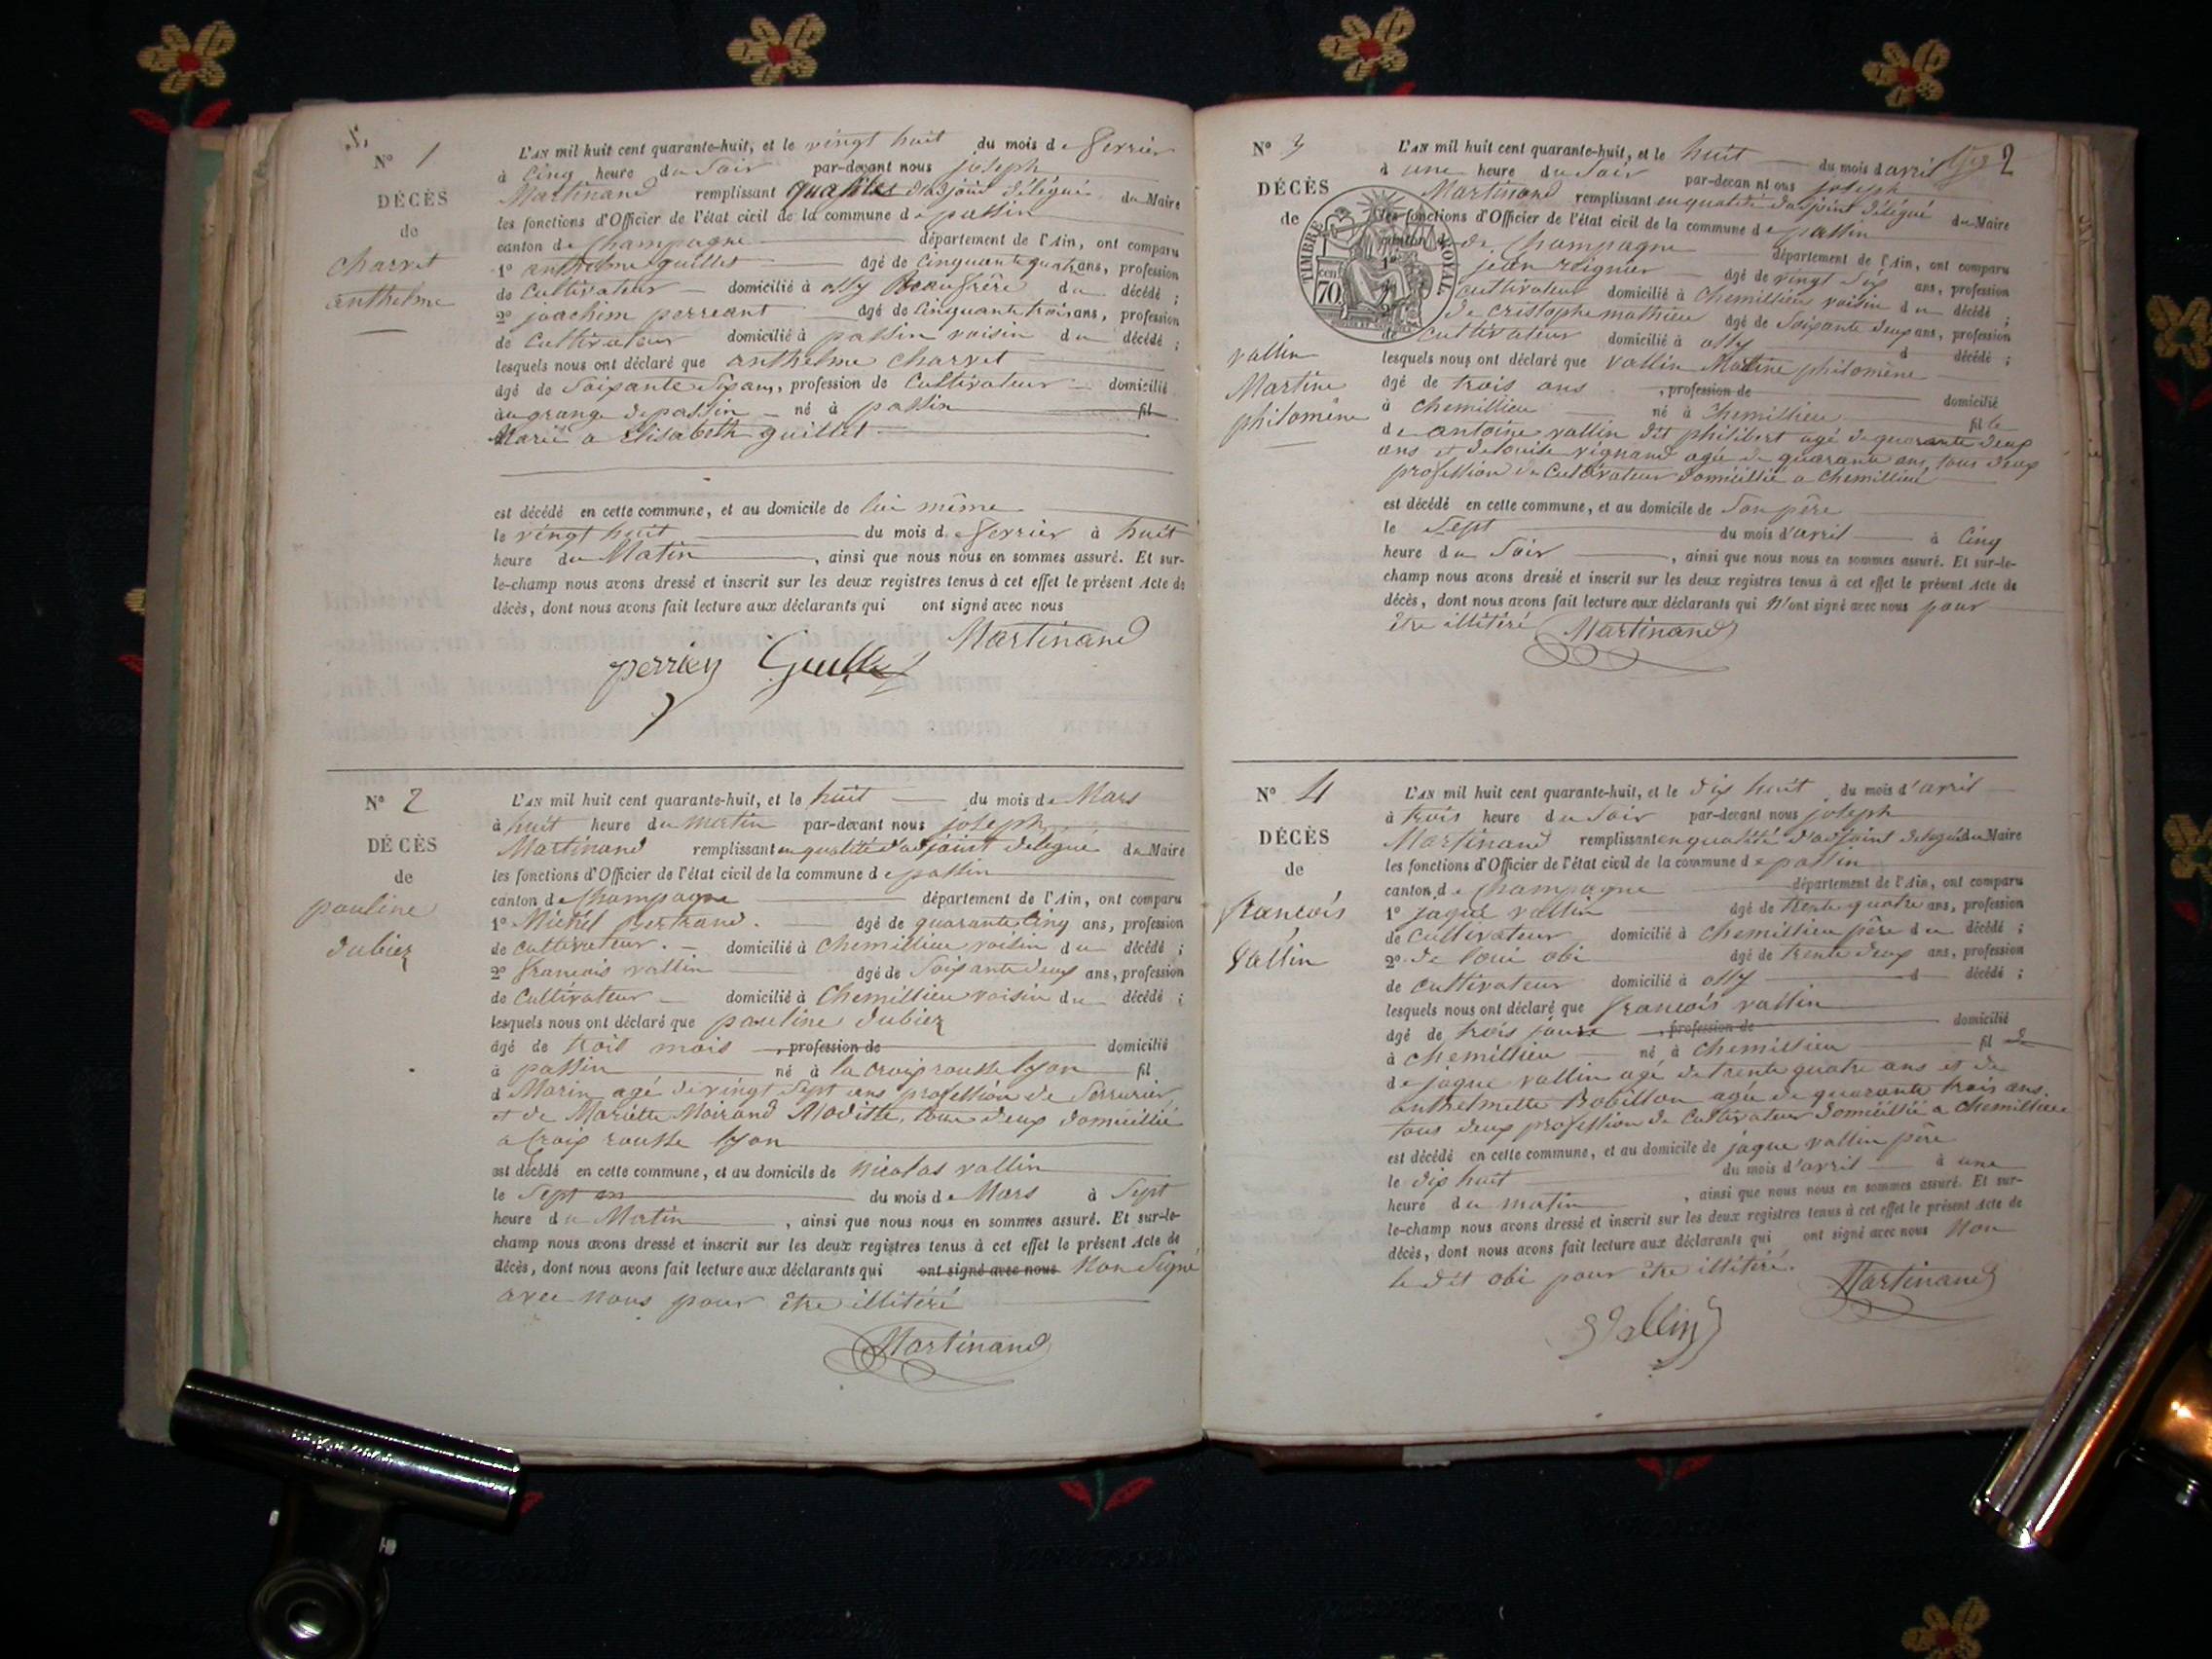 N° 1
DÉCÈS
de
Charvet
anthelme
L'AN mil huit cent quarante-huit, et le vingt huit du mois de fevrier
à Cinq heure du Soir par-devant nous joseph
Martinand remplissant qualité d'adjoint délégué du Maire
les fonctions d'Officier de l'état civil de la commune de passin
canton de Champagne département de l'Ain, ont comparu
1° anthelme guillet âgé de Cinquante quatre ans, profession
de Cultivateur domicilié à ossy Beaufrère du décédé ;
2° joachim perreant âgé de Cinquante trois ans, profession
de Cultivateur domicilié à passin voisin du décédé ;
lesquels nous ont déclaré que anthelme Charvet
âgé de Soixante Six ans, profession de Cultivateur domicilié
au grange de passin né à passin fil
Marié a Elisabeth guillet
est décédé en cette commune, et au domicile de lui même
le vingt huit du mois de fevrier à huit
heure du Matin, ainsi que nous nous en sommes assuré. Et sur-
le-champ nous avons dressé et inscrit sur les deux registres tenus à cet effet le présent Acte de
décès, dont nous avons fait lecture aux déclarants qui ont signé avec nous
Martinand
N° 2
DÉCÈS
de
pauline
dubiez
L'AN mil huit cent quarante-huit, et le huit du mois de Mars
à huit heure du matin par-devant nous joseph
Martinand remplissant en qualité d'adjoint délégué du Maire
les fonctions d'Officier de l'état civil de la commune de passin
canton de Champagne département de l'Ain, ont comparu
1° Michel Bertrand. âgé de quarante Cinq ans, profession
de Cultivateur. domicilié à Chemillieu voisin du décédé ;
2° francois vallin âgé de Soixante deux ans, profession
de Cultivateur domicilié à Chemillieu voisin du décédé ;
lesquels nous ont déclaré que pauline dubiez
âgé de trois mois, profession de domicilié
à passin né à la Croix rousse lyon fil
d Marin agé de vingt Sept ans profession de Serrurier
et de Mariette Moirand Modiste, tous deux domicillié
a Croix rousse lyon
est décédé en cette commune, et au domicile de nicolas vallin
le Sept du mois de Mars à Sept
heure du Matin, ainsi que nous nous en sommes assuré. Et sur-le-
champ nous avons dressé et inscrit sur les deux registres tenus à cet effet le présent Acte de
décès, dont nous avons fait lecture aux déclarants qui ont signé avec nous Non Signé
avec nous pour être illitéré
Martinand
2
N° 3
DÉCÈS
de
TIMBRE ROYAL
70 cent
vallin
Martine
philomène
L'AN mil huit cent quarante-huit, et le huit du mois d avril
à une heure du Soir par-devan nt ous joseph
Martinand remplissant en qualité d'adjoint délégué du Maire
les fonctions d'Officier de l'état civil de la commune de passin
canton de de Champagne département de l'Ain, ont comparu
jean reignier âgé de vingt Six ans, profession
cultivateur domicilié à Chemillieu voisin du décédé ;
de cristophe mathieu âgé de Soixante deux ans, profession
de cultivateur domicilié à ossy d décédé ;
lesquels nous ont déclaré que vallin Martine philomène
âgé de trois ans, profession de domicilié
à Chemillieu né à Chemillieu fille
de antoine vallin dit philibert agé de quarante deux
ans et de louise vignand agée de quarante ans, tous deux
profession de Cultivateur domicillié a Chemillieu
est décédé en cette commune, et au domicile de Son père
le Sept du mois d'avril à Cinq
heure du Soir, ainsi que nous nous en sommes assuré. Et sur-le-
champ nous avons dressé et inscrit sur les deux registres tenus à cet effet le présent Acte de
décès, dont nous avons fait lecture aux déclarants qui n'ont signé avec nous pour
être illitéré Martinand
N° 4
DÉCÈS
de
francois
Vallin
L'AN mil huit cent quarante-huit, et le dix huit du mois d'avril
à trois heure du Soir par-devant nous joseph
Martinand remplissant en qualité d'adjoint délégué du Maire
les fonctions d'Officier de l'état civil de la commune de passin
canton de Champagne département de l'Ain, ont comparu
1° jaque vallin âgé de trente quatre ans, profession
de Cultivateur domicilié à Chemillieu père du décédé ;
2° de loui obi âgé de trente deux ans, profession
de cultivateur domicilié à ossy d décédé ;
lesquels nous ont déclaré que francois vallin
âgé de trois jours, profession de domicilié
à Chemillieu né à Chemillieu fil
de jaque vallin agé de trente quatre ans et de
anthelmette Robillon agée de quarante trois ans
tous deux profession de Cultivateur domicillié a Chemillieu
est décédé en cette commune, et au domicile de jaque vallin père
le dix huit du mois d'avril à une
heure du matin, ainsi que nous nous en sommes assuré. Et sur-
le-champ nous avons dressé et inscrit sur les deux registres tenus à cet effet le présent Acte de
décès, dont nous avons fait lecture aux déclarants qui ont signé avec nous Non
le dit obi pour être illitéré.
Martinand
Vallin